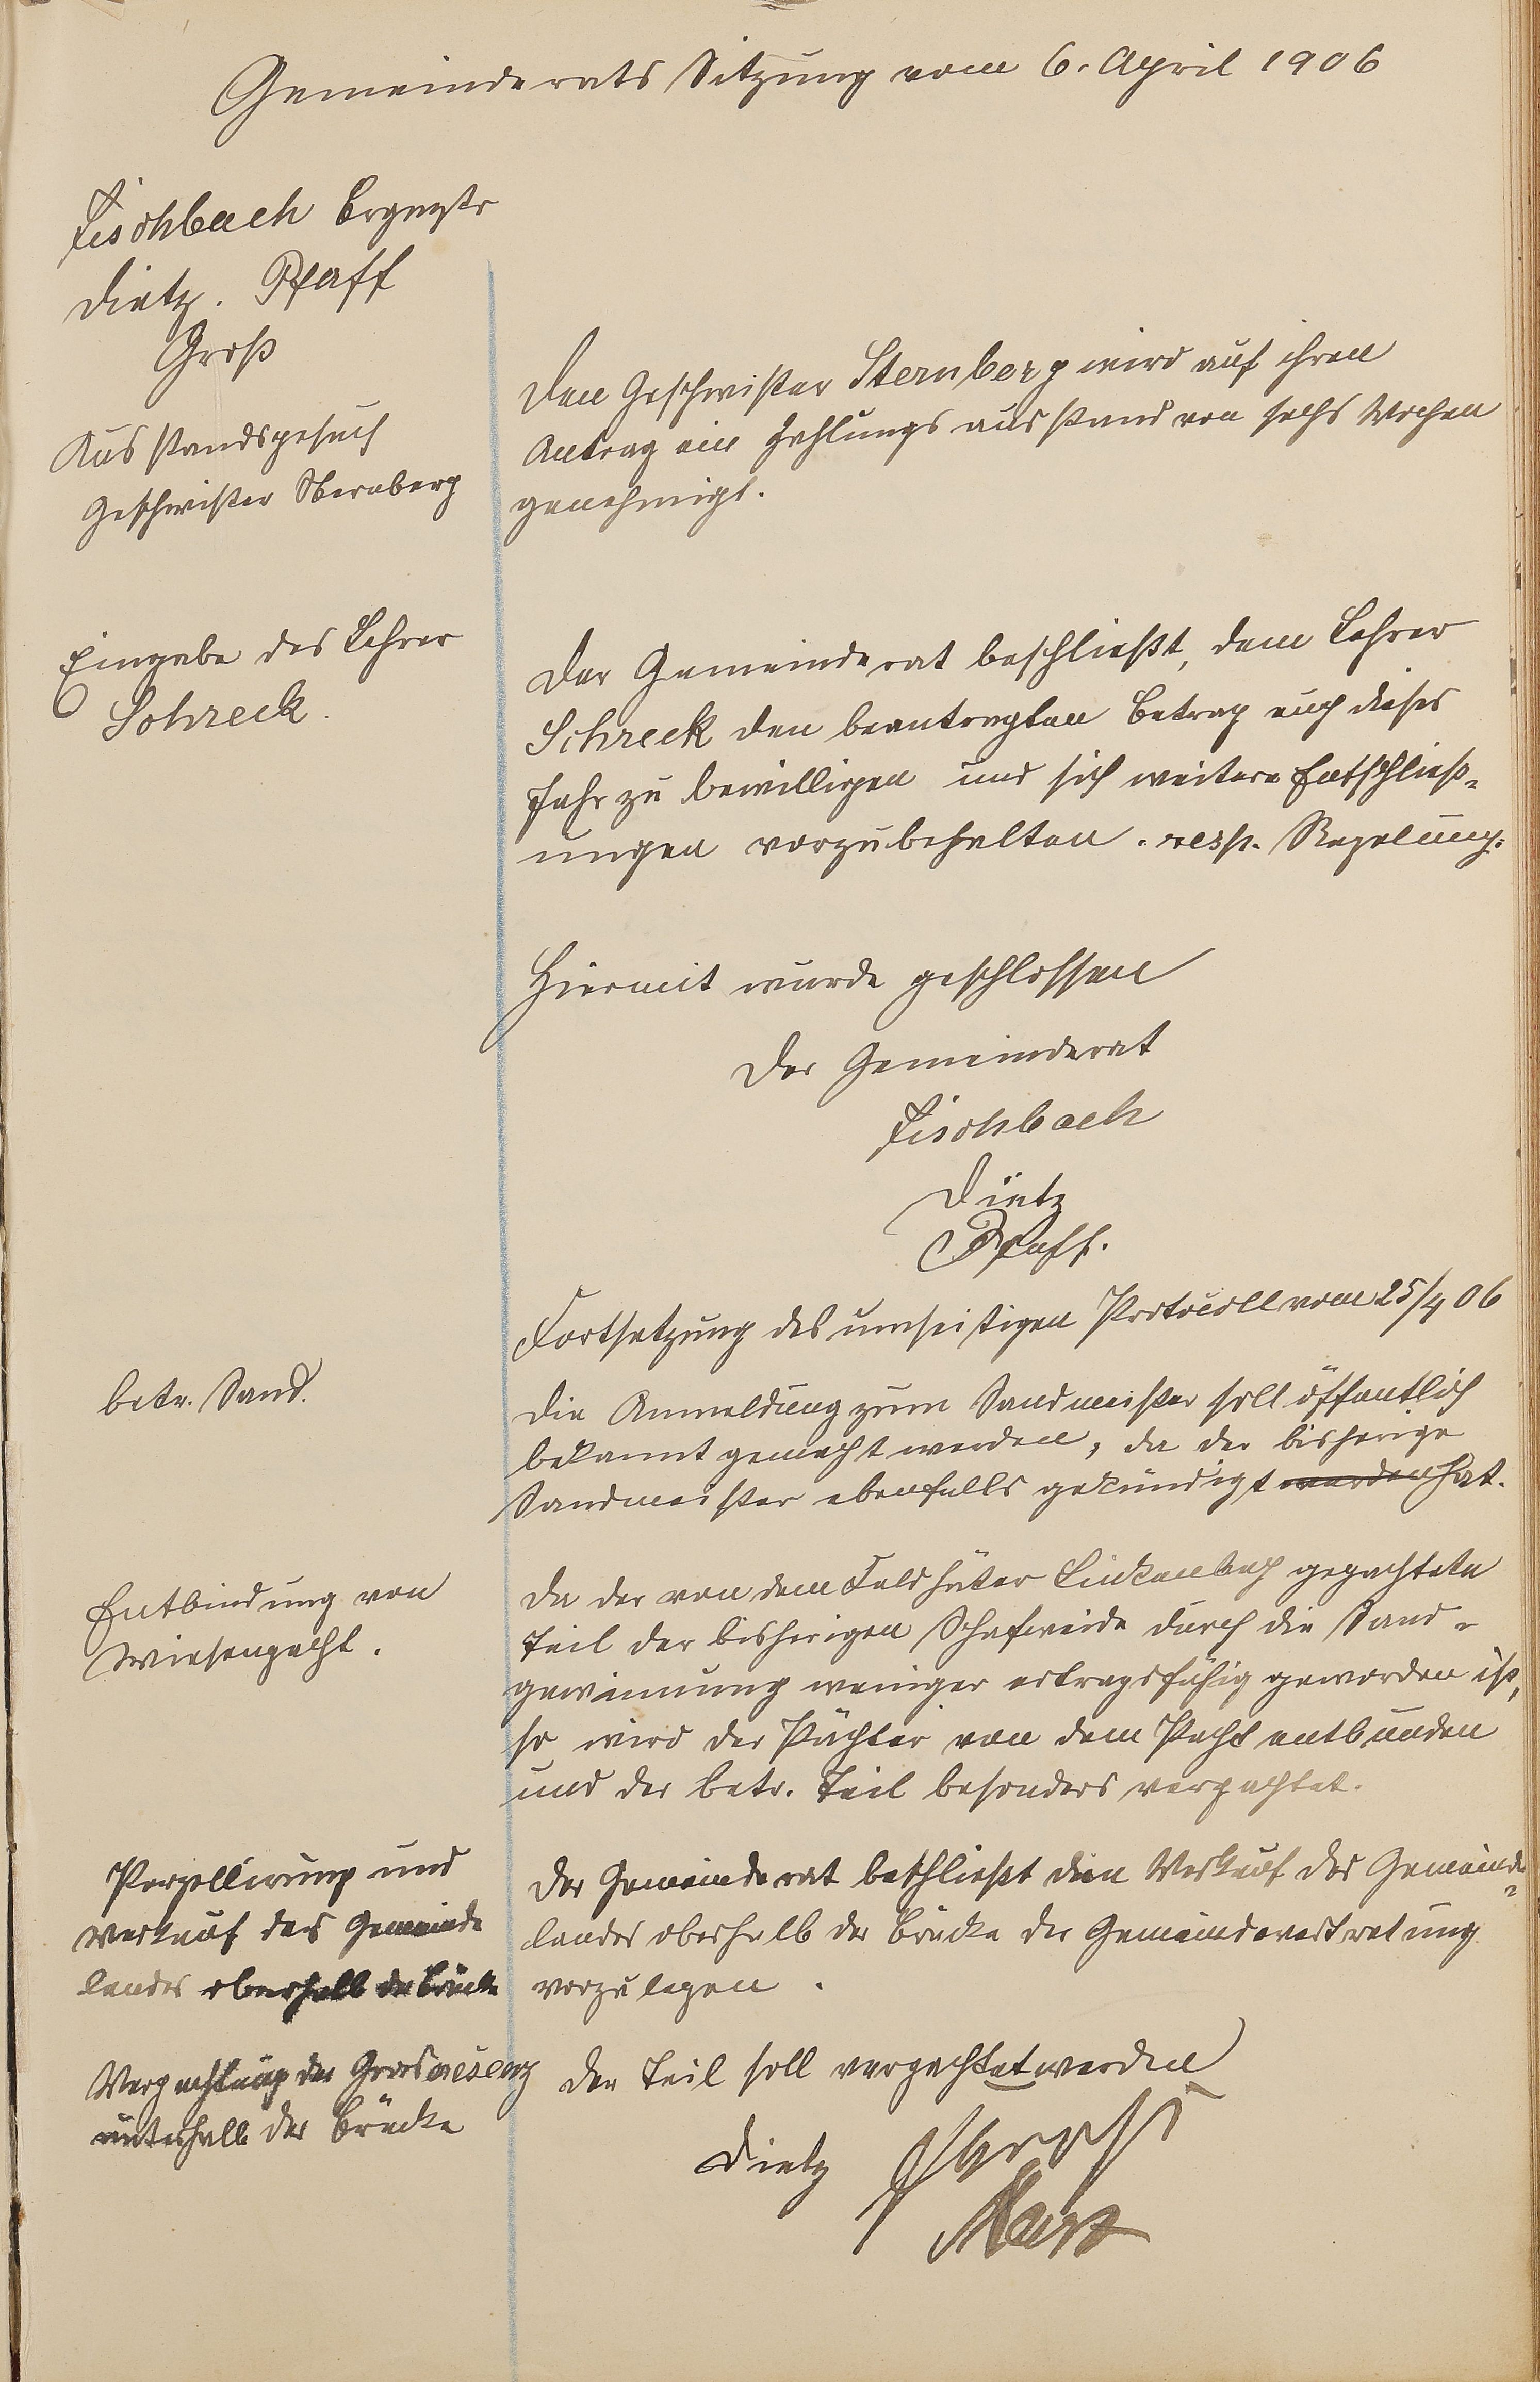 Gemeinderats Sitzung vom 6. April 1906
Fischbach Brgmstr
Dietz. Pfaff
Groß
Ausstandsgesuch
Geschwister Sternberg
Den Geschwister Sternberg wird auf ihren
Antrag ein Zahlungsausstand von sechs Wochen
genehmigt.
Eingabe des Lehrer
Schreck.
Der Gemeinderat beschließt, dem Lehrer
Schreck den beantragten Betrag auch dieses
Jahr zu bewilligen und sich weitere Entschließ-
ungen vorzubehalten. resp. Regelung.
Hiermit wurde geschlossen
Der Gemeinderat
Fischbach
Dietz
Pfaff.
Fortsetzung des umseitigen Protocoll vom 25/4 06
betr. Sand.
Die Anmeldung zum Sandmeister soll öffentlich
bekannt gemacht werden, da der bisherige
Sandmeister ebenfalls gekündigt werden hat.
Entbindung von
Wiesenpacht.
Da der von dem Feldhüter Linkenbach gepachtete
Teil der bisherigen Schafweide durch die Sand-
gewinnung weniger ertragsfähig geworden ist,
so wird der Pächter von dem Pacht entbunden
und der betr. Teil besonders verpachtet.
Parzellierung und
Verkauf des Gemeinde
landes oberhalb der Brücke
Der Gemeinderat beschließt den Verkauf des Gemeinde-
landes oberhalb der Brücke der Gemeindevertretung
vorzulegen.
Verpachtung der
unterhalb der Brücke
Der Teil soll verpachtet werden
Dietz Gross